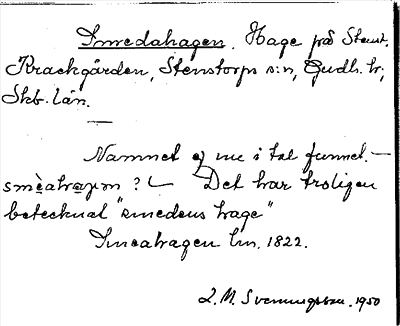 Smedahagen. Hage på Stenst.
Krackgården, Stenstorps s:n, Gudh. hr;
Skb. län.
Namnet ej nu i tal funnet. —
smèahaɡ̣ɔn ? Det har troligen
betecknat "smedens hage"
Smeahagen lm. 1822.
L. M. Svenungsson. 1950